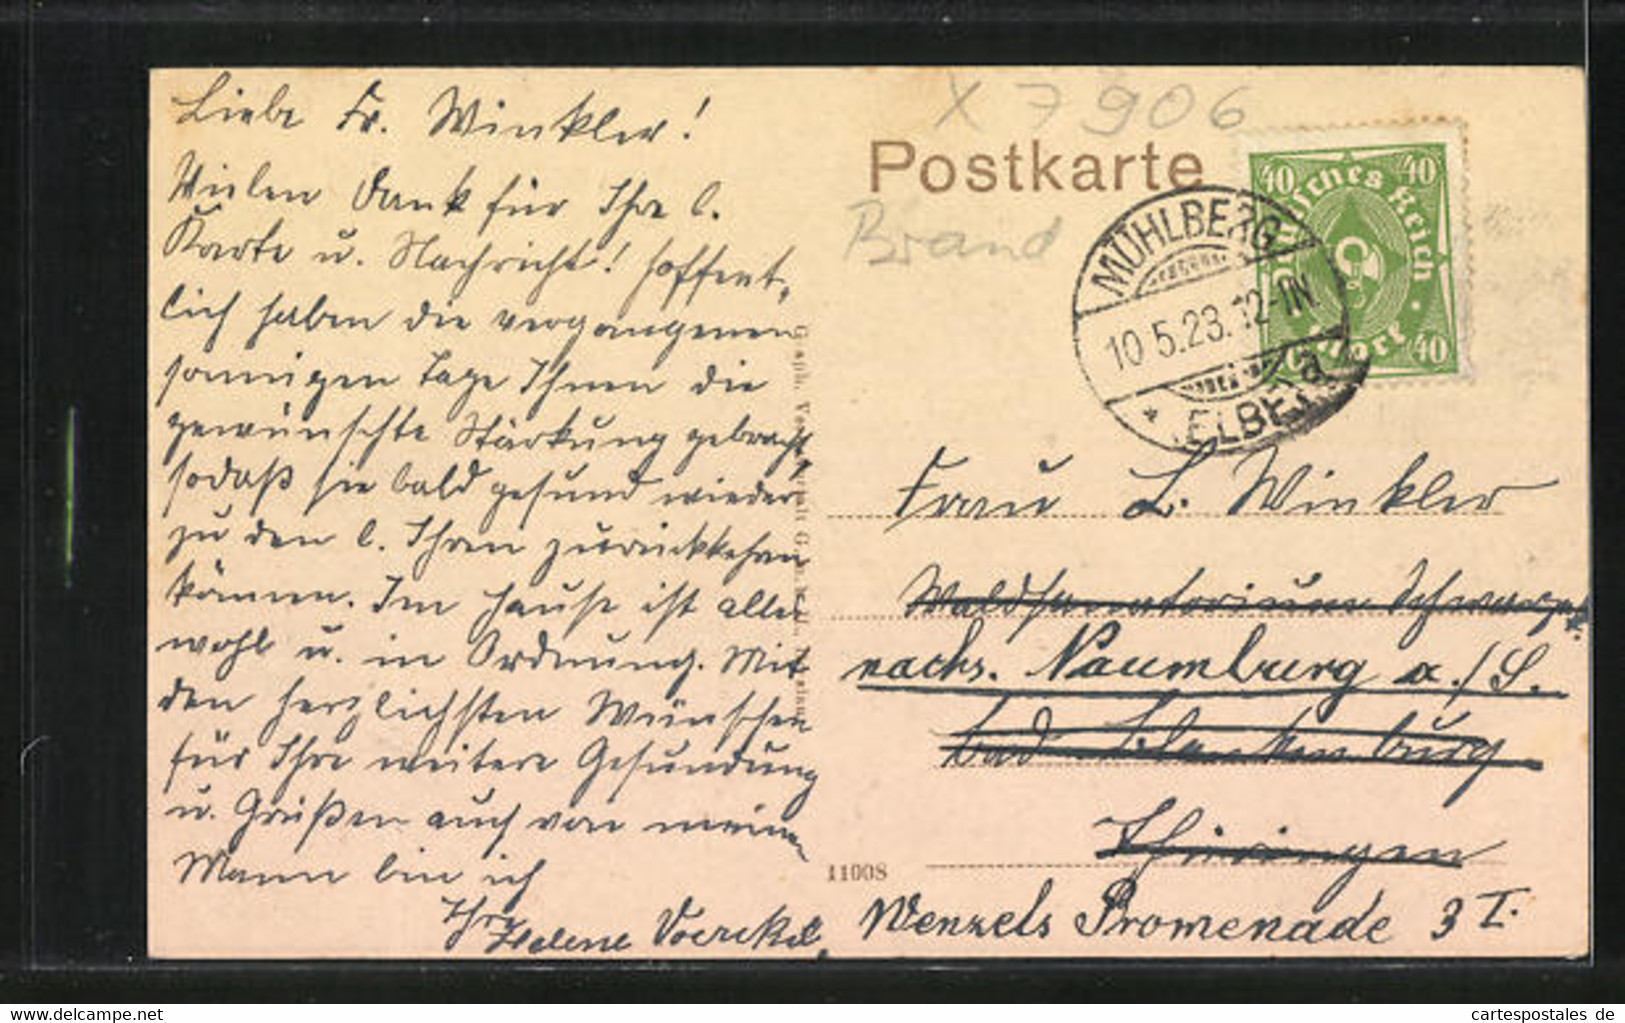 Liebe Fr. Winkler!
Vielen Dank für Ihre l.
Karte u. Nachricht! Hoffent-
lich haben die vergangenen
sonnigen Tage Ihnen die
gewünschte Stärkung gebracht,
sodaß sie bald gesund wieder
zu den l. Ihren zurückkehren
können. Im Hause ist alles
wohl u. in Ordnung. Mit
den herzlichsten Wünschen
für Ihre weitere Gesundung
u. Grüßen auch von meinem
Mann bin ich
Ihre
Helene
X 7906
Postkarte
Brand
40 40
Deutsches Reich
40
MÜHLBERG
10.5.23. 12-1N.
* ELBE
Frau L. Winkler
Waldsanatorium Schwarzeck
nachs. Naumburg a./S.
bad Blankenburg
Thüringen
11008
Wenzels Promenade 3 I.
www.cartespostales.eu
cartespostales de